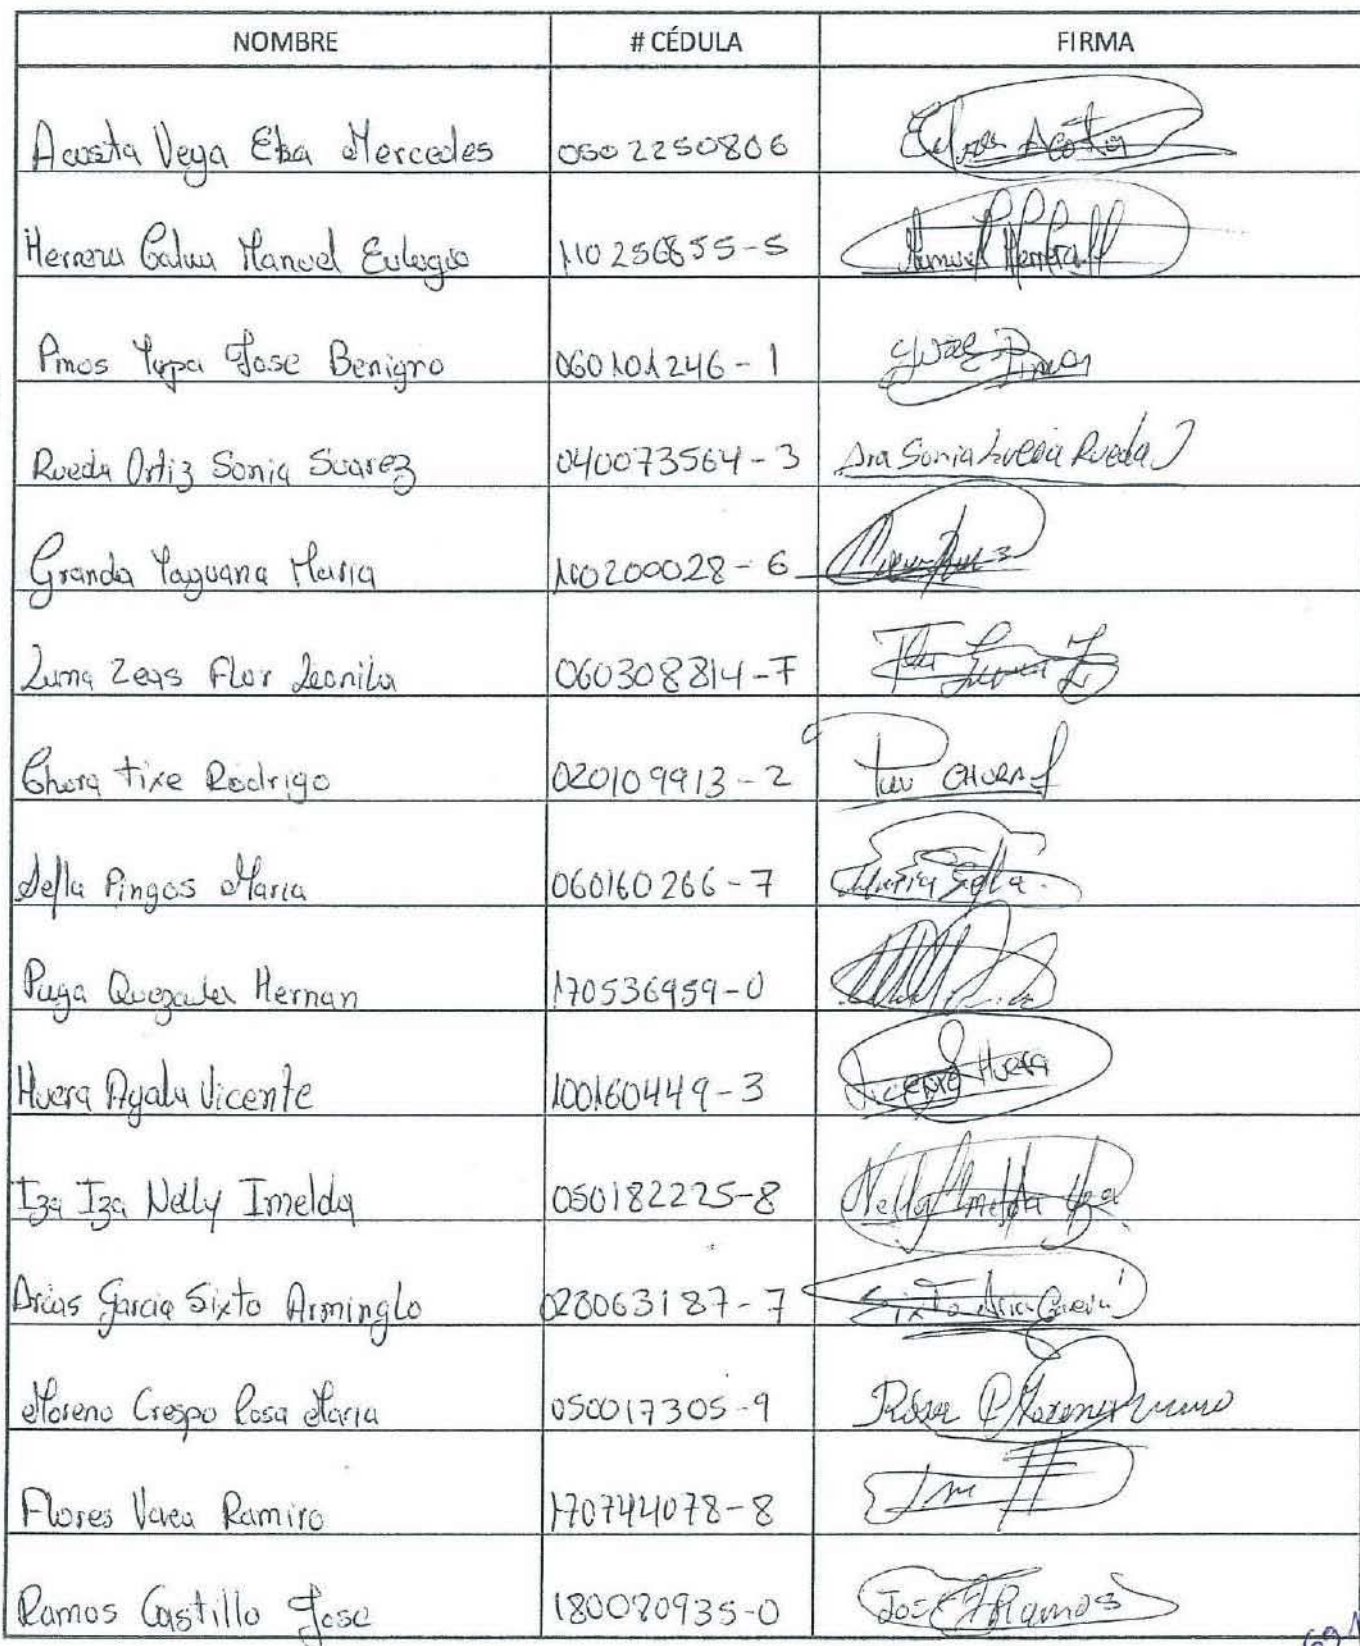 NOMBRE # CÉDULA FIRMA
Acosta Vega Elsa Mercedes 0502250806 Acosta
Herrera Calva Manuel Eulogio 110256855-5 Manuel Herrera
Pinos Yupa Jose Benigno 060101246-1 Jose Pinos
Rueda Ortiz Sonia Suarez 040073564-3 Dra Sonia Lucia Rueda
Granda Yaguana Maria 110200028-6
Luma Zeas Flor Leonila 060308814-7 Flor Luma Z
Chora tixe Rodrigo 020109913-2 CHORA
Sella Pingos Maria 060160266-7 Maria Sella
Puga Quezada Hernan 170536959-0
Huera Ayala Vicente 100160449-3 Vicente Huera
Iza Iza Nelly Imelda 050182225-8 Nelly Imelda Iza
Arias Garcia Sixto Arminglo 0280063187-7 Sixto Aria Garcia
Moreno Crespo Rosa Maria 050017305-9 Rosa Moreno
Flores Vaca Ramiro 170744078-8
Ramos Castillo Jose 180080935-0 Jose Ramos